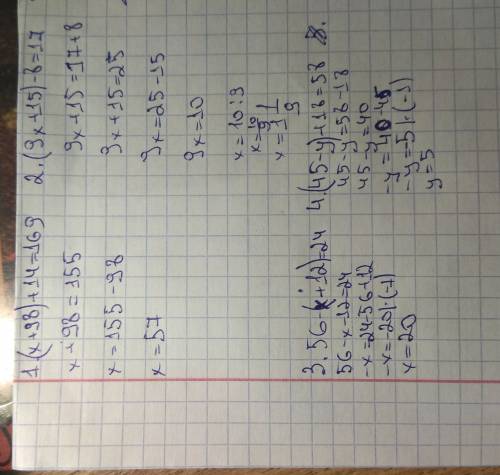 1.(x+98)+14=169
x+98=155
x=155-98
x=57
2.(9x+15)-8=17
9x+15=17+8
9x+15=25
9x=25-15
9x=10
x=10:9
x=10/9
x=1 1/9
3.56-(x+12)=24
56-x-12=24
-x=24-56+12
-x=-20|·(-1)
x=20
4.(45-y)+18=58
45-y=58-18
45-y=40
-y=40-45
-y=-5|·(-1)
y=5